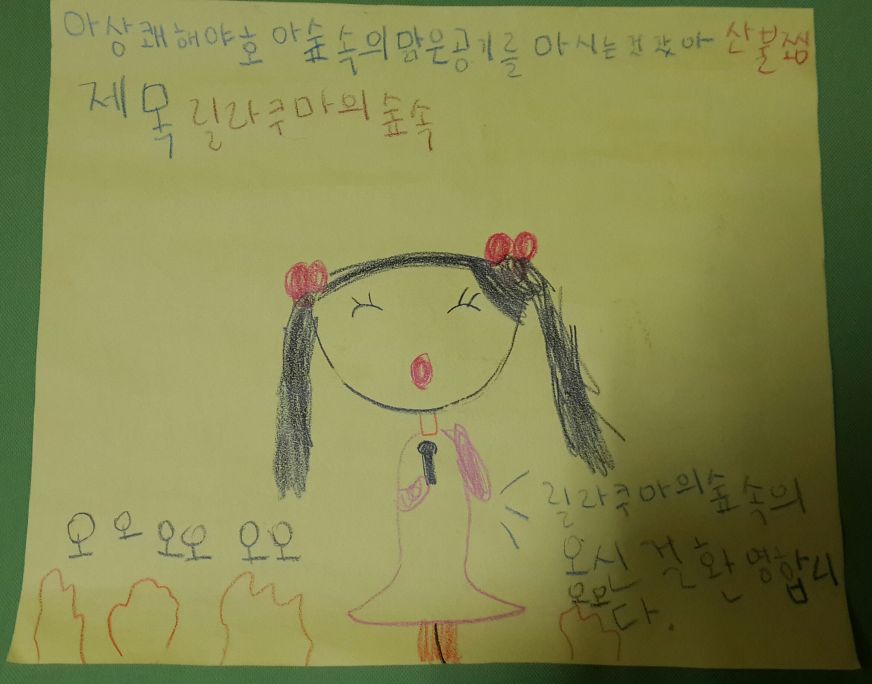 아상쾌해야호 아숲속의맑은공기를 마시는것같아 산불찜
제목 릴라쿠마의숲속
오오오오오오
릴라쿠마의숲속의
오신 걸 환영합니
다.
오오